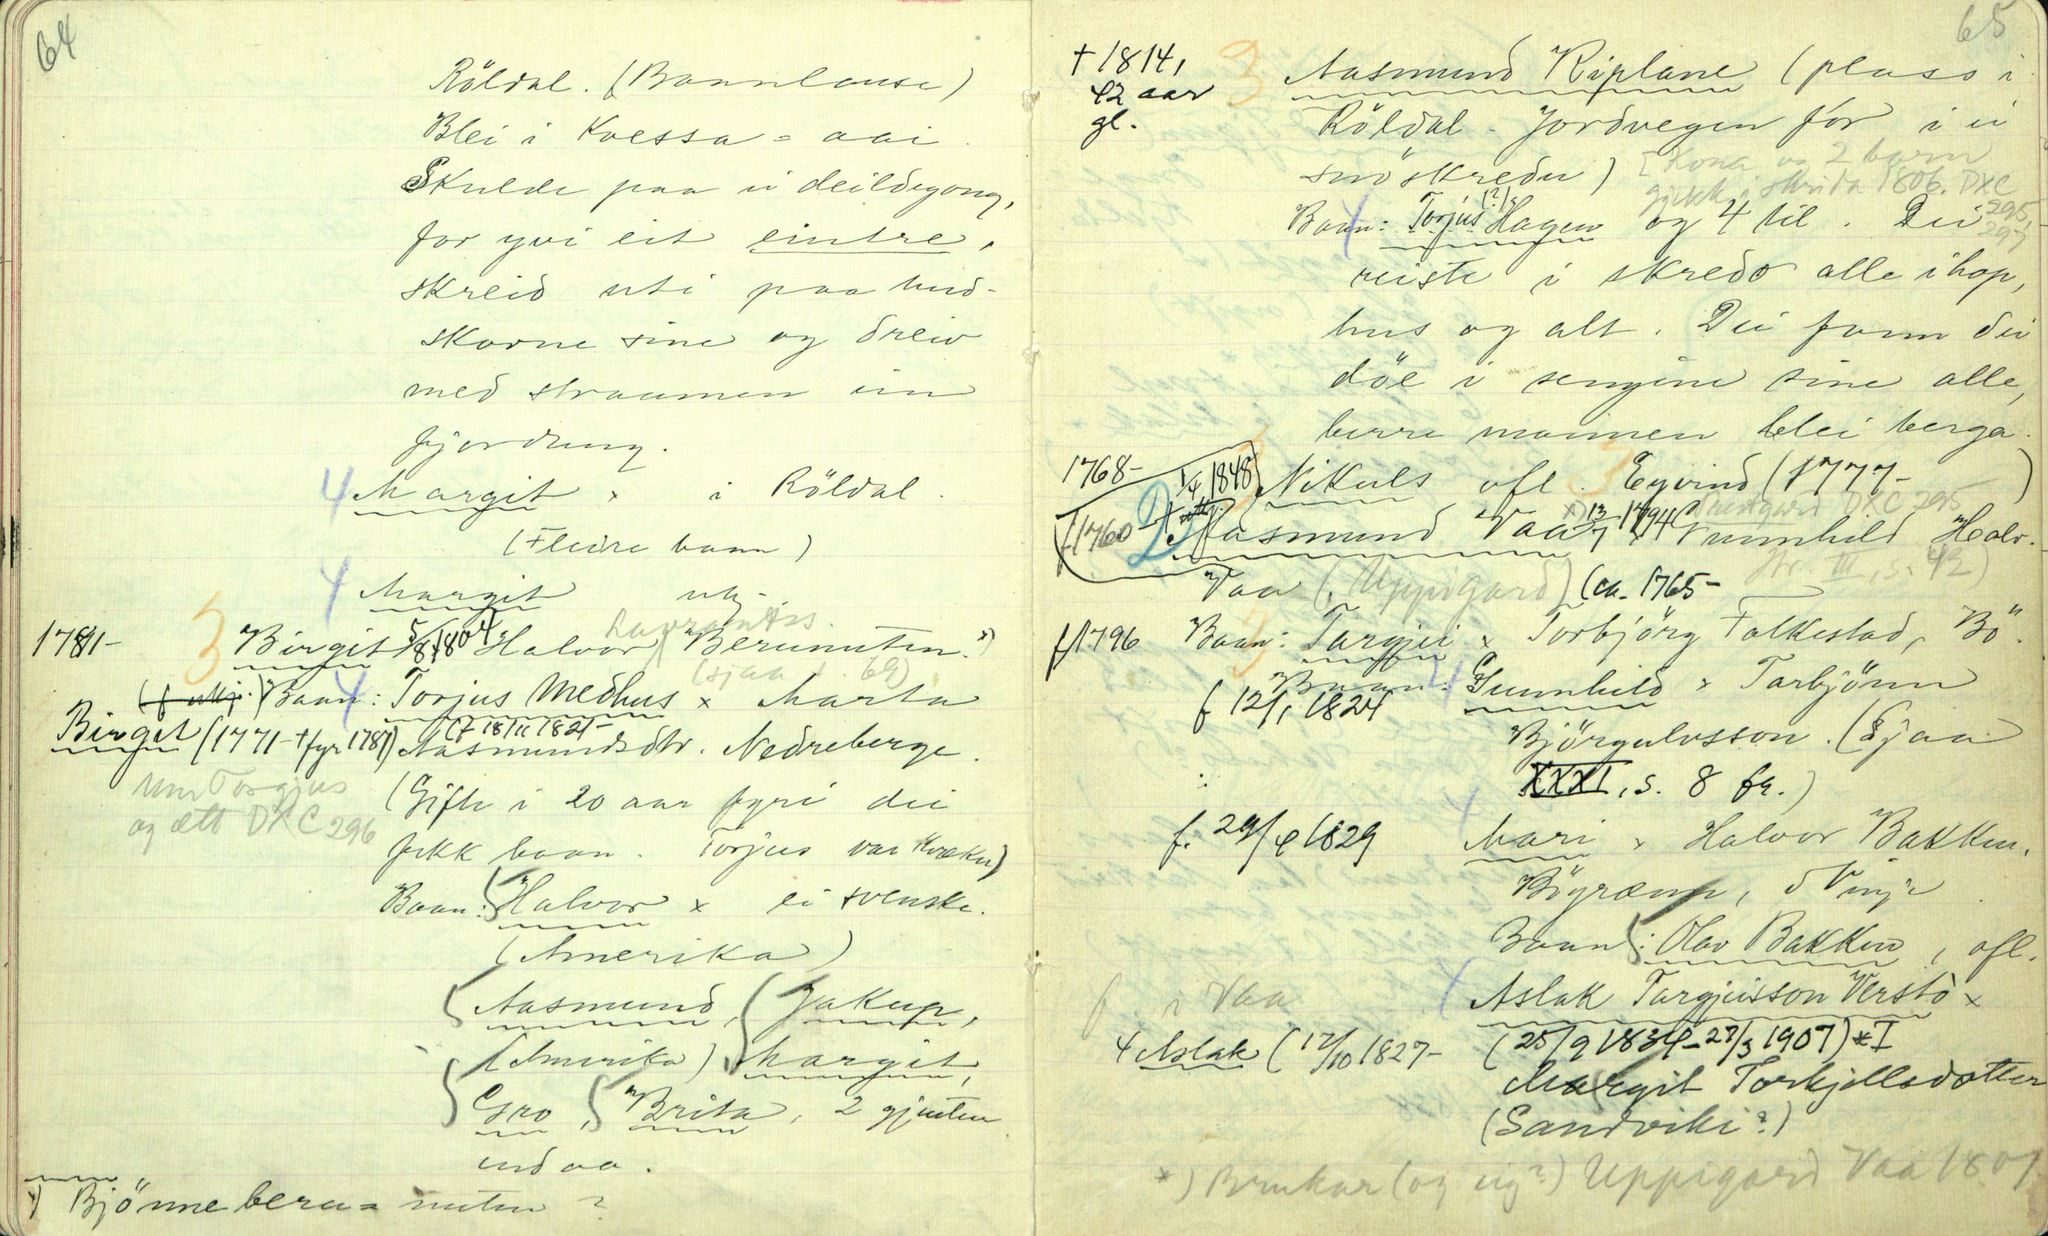 64
Röldal. (Baanlause)
Blei i Kvessa = aai.
Skulde paa ei deildegong,
for yvi eit eintre,
skreid uti paa hud-
skorne sine og dreiv
med straumen inn
fjordung.
4 Margit × i Röldal.
(Fleire baan)
4 Margit ugj.
1781- 3 Birgit 5/8 1804 × Halvor Laurantss. Berunuten.*)
(sjaa s. 69)
(f. ukj.) Baan: 4 Torjus Medhus × Marta
(f 18/11 1821-
Birgit (1771-†fyr 1787) Aasmundsdtr. Nedreberge.
um Torgjus
og ætt DXC 296
(Gifte i 20 aar fyri dei
fekk baan. Torjus var Kvækar)
Baan: Halvor × ei svenske.
(Amerika)
Aasmund, Jakup,
(Amerika) Margit,
Gro, Brita, 2 gjenten
endaa.
*) Bjönneberu = nuten?
65
† 1814,
42 aar
gl.
3 Aasmund Kiplane (plass i
Röldal. Jordvegen for i ei
snöskreda) [Kona og 2 born
gjekk i skrida 1806. DXC
295,
297
Baan: 4 Torjus (?) Hagen og 4 til. Dei
reiste i skredo alle ihop,
hus og alt. Dei fonn dei
döe i sengine sine alle,
berre mannen blei berga.
1768- 1/4 1848) Nikuls ofl. 3 Eyvind (1777- )
Prestgard DXC 295
f 1760 2 Aasmund Vaa *) 13/7 1794 × Gunnhild Halv.
Hr. III, s. 42)
Vaa (Uppigard) (ca. 1765-
f 1796 Baan: 3 Targjei × Torbjörg Folkestad, Bö.
f 12/1 1824 Baan: 4 Gunnhild × Tarbjönn
Björgulvsson. (Sjaa
XXXI, s. 8 fr.)
f. 29/4 1829 4 Mari × Halvor Bakken,
Bögrænd, Vinje.
Baan: Olav Bakken, ofl.
f. i Vaa 4 Aslak Targjeisson Verstö ×
4 Aslak (17/10 1827- (25/9 1834-27/3 1907) *I
Margit Torkjellsdotter
(Sandviki?)
*) Brukar (og eig?) Uppigard Vaa 1801